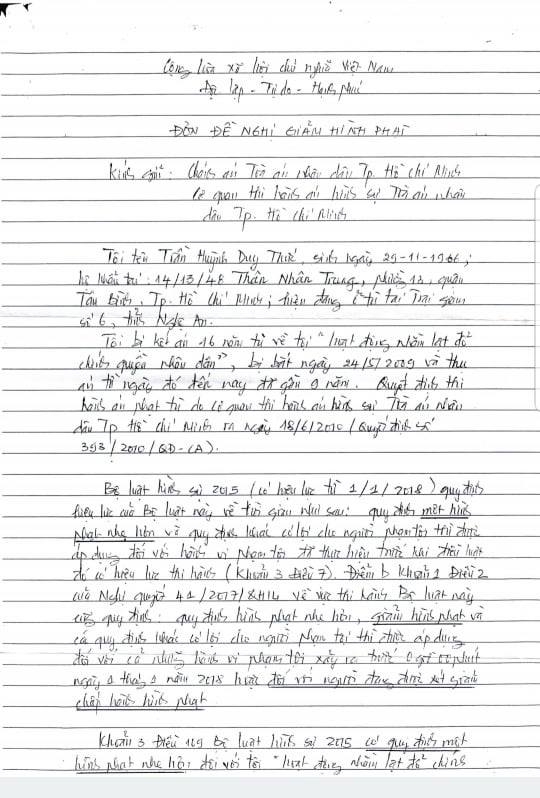 Cộng hòa xã hội chủ nghĩa Việt Nam
Độc lập - Tự do - Hạnh phúc
ĐƠN ĐỀ NGHỊ GIẢM HÌNH PHẠT
Kính gửi: Chánh án Tòa án nhân dân Tp. Hồ Chí Minh
Cơ quan thi hành án hình sự Tòa án nhân
dân Tp. Hồ Chí Minh
Tôi tên Trần Huỳnh Duy Thức, sinh ngày 29-11-1966,
hộ khẩu tại: 14/13/48 Thân Nhân Trung, phường 13, quận
Tân Bình, Tp. Hồ Chí Minh; hiện đang ở tù tại Trại giam
số 6, tỉnh Nghệ An.
Tôi bị kết án 16 năm tù về tội "hoạt động nhằm lật đổ
chính quyền nhân dân", bị bắt ngày 24/5/2009 và thụ
án từ ngày đó đến nay đã gần 9 năm. Quyết định thi
hành án phạt tù do cơ quan thi hành án hình sự Tòa án nhân
dân Tp Hồ Chí Minh ra ngày 18/6/2010 (Quyết định số
393/2010/QĐ-CA).
Bộ luật hình sự 2015 (có hiệu lực từ 1/1/2018) quy định
hiệu lực của Bộ luật này về thời gian như sau: quy định một hình
phạt nhẹ hơn và quy định khác có lợi cho người phạm tội thì được
áp dụng đối với hành vi phạm tội đã thực hiện trước khi điều luật
đó có hiệu lực thi hành (Khoản 3 Điều 7). Điểm b Khoản 1 Điều 2
của Nghị quyết 41/2017/QH14 về việc thi hành Bộ luật này
cũng quy định: quy định hình phạt nhẹ hơn, giảm hình phạt và
các quy định khác có lợi cho người phạm tội thì được áp dụng
đối với cả những hành vi phạm tội xảy ra trước 0 giờ 00 phút
ngày 1 tháng 1 năm 2018 hoặc đối với người đang được xét giảm
chấp hành hình phạt.
Khoản 3 Điều 109 Bộ luật hình sự 2015 có quy định một
hình phạt nhẹ hơn đối với tội "hoạt động nhằm lật đổ chính